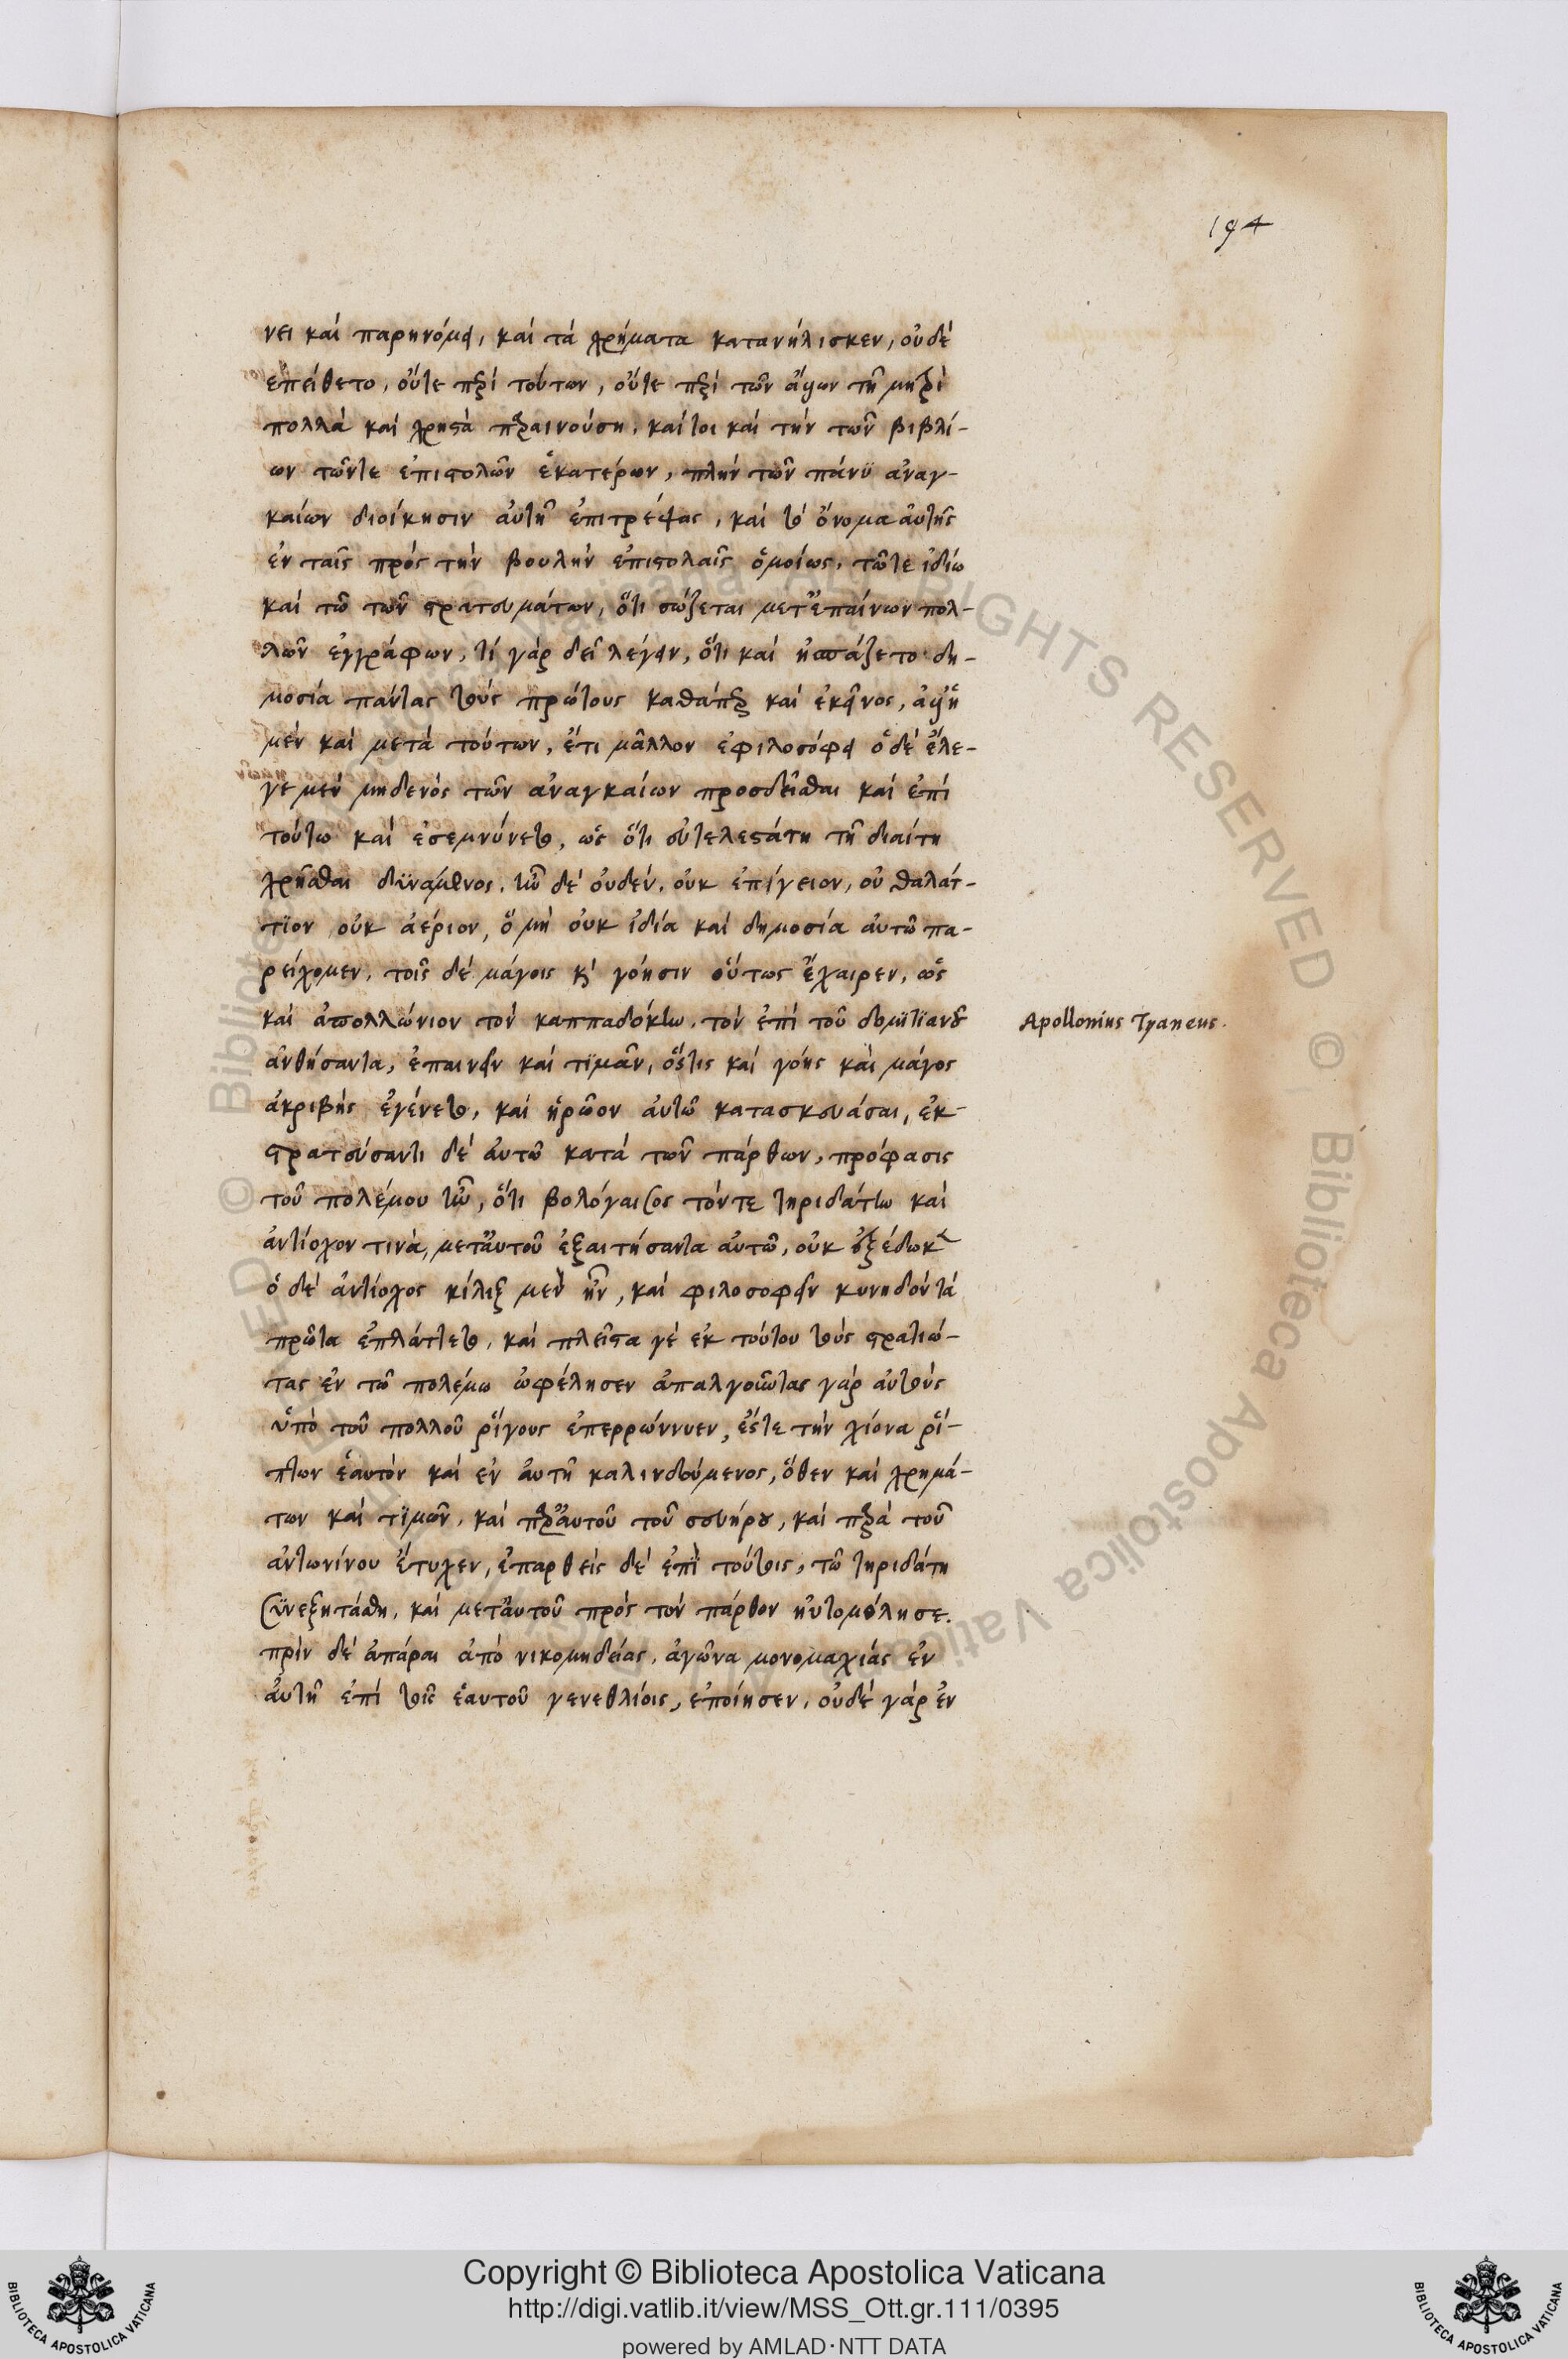 194
νει καί παρηνόμει, καί τά χρήματα κατανήλισκεν, οὐδέ
ἐπείθετο, οὔτε περί τούτων, οὔτε περί τῶν ἄλλων τῆ μητρί
πολλά καί χρηστά παραινούση. καίτοι καί τήν τῶν βιβλί-
ων τῶντε ἐπιστολῶν ἑκατέρων, πλήν τῶν πάνϋ ἀναγ-
καίων διοίκησιν αὐτῆ ἐπιτρέψας, καί τό ὄνομα αὐτῆς
ἐν ταῖς πρός τήν βουλήν ἐπιστολαῖς ὁμοίως, τῶτε ἰδίω
καί τῶ τῶν στρατευμάτων, ὅτι σώζεται μετ' ἐπαίνων πολ-
λῶν ἐγγράφων, τί γάρ δεῖ λέγειν, ὅτι καί ἠσπάζετο δη-
μοσία πάντας τούς πρώτους καθάπερ καί ἐκεῖνος, ἀλλ' ἡ
μέν καί μετά τούτων, ἔτι μᾶλλον ἐφιλοσόφει ὁ δέ ἔλε-
γε μέν μηδενός τῶν ἀναγκαίων προσδεῖσθαι καί ἐπί
τούτω καί ἐσεμνύνετο, ὡς ὅτι εὐτελεστάτη τῆ διαίτη
χρῆσθαι δϋνάμενος, ἦν δέ οὐδέν, οὐκ ἐπίγειον, οὐ θαλάτ-
τϊον οὐκ ἀέριον, ὅ μή οὐκ ἰδία καί δημοσία αὐτῶ πα-
ρείχομεν, τοῖς δέ μάγοις κ' γόησιν οὕτως ἔχαιρεν, ὡς
καί ἀπολλώνιον τόν καππαδόκην, τόν ἐπί τοῦ δομϊτϊανοῦ
ἀνθήσαντα, ἐπαινεῖν καί τϊμᾶν, ὅστις καί γόης καί μάγος
ἀκριβής ἐγένετο, καί ἡρῶον αὐτῶ κατασκευάσαι, ἐκ-
στρατεύσαντι δέ αὐτῶ κατά τῶν πάρθων, πρόφασις
τοῦ πολέμου ἦν, ὅτι βολόγαισος τόντε τηριδάτην καί
ἀντίοχον τινά, μετ' αὐτοῦ ἐξαιτήσαντα αὐτῶ, οὐκ ἐξέδωκε
ὁ δέ ἀντίοχος κίλιξ μέν ἦν, καί φιλοσοφεῖν κυνηδόν τά
πρῶτα ἐπλάττετο, καί πλεῖστα γέ ἐκ τούτου τούς στρατιώ-
τας ἐν τῶ πολέμω ὠφέλησεν ἀπαλγοῦντας γάρ αὐτούς
ὑπό τοῦ πολλοῦ ῥίγους ἐπερρώννυεν, ἔστε τήν χιόνα ῥί-
πτων ἑαυτόν καί ἐν αὐτῆ καλινδούμενος, ὅθεν καί χρημά-
των καί τϊμῶν, καί παρ' αὐτοῦ τοῦ σευήρου, καί παρά τοῦ
ἀντωνίνου ἔτυχεν, ἐπαρθείς δέ ἐπί τούτοις, τῶ τηριδάτη
σϋνεξητάσθη, καί μετ' αὐτοῦ πρός τόν πάρθον ηὐτομόλησε.
πρίν δέ ἀπάραι ἀπό νικομηδείας, ἀγῶνα μονομαχιάς ἐν
αὐτῆ ἐπί τοῖς ἑαυτοῦ γενεθλίοις, ἐποίησεν, οὐδέ γάρ ἐν
Apollonius Tyaneus.
Copyright © Biblioteca Apostolica Vaticana
http://digi.vatlib.it/view/MSS_Ott.gr.111/0395
powered by AMLAD·NTT DATA